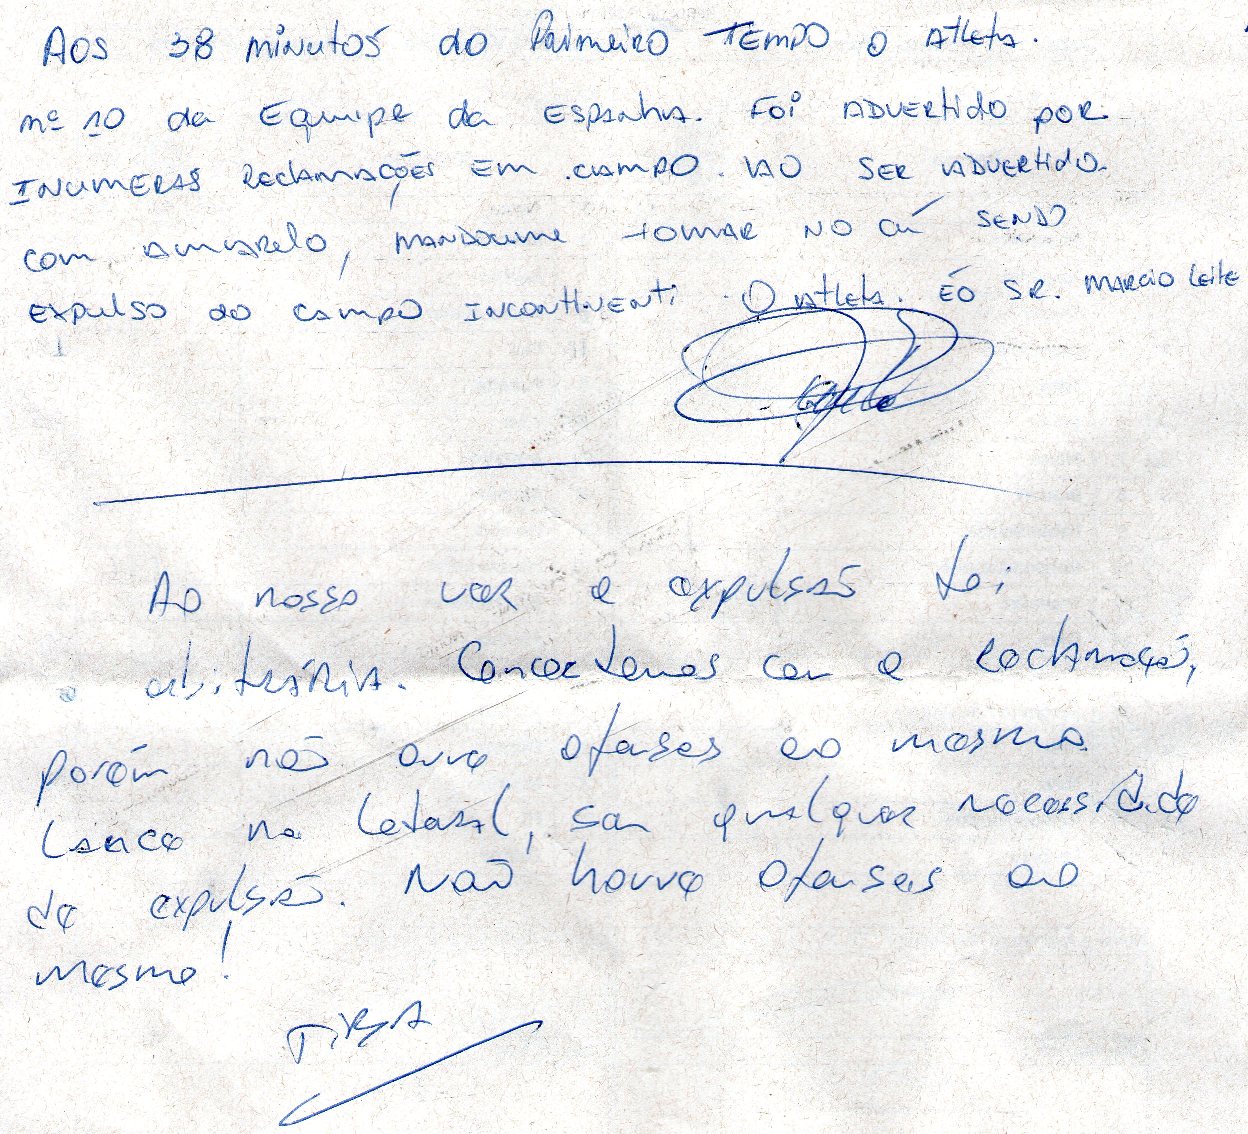 Aos 38 minutos do Primeiro Tempo o atleta.
nº 10 da Equipe da Espanha. Foi advertido por
inumeras reclamações em campo. Ao ser advertido.
com amarelo, mandoume tomar no cú sendo
expulso do campo incontinenti. O atleta. éo Sr. Marcio Leite
Ao nosso ver a expulsão foi
abitrária. Concordamos com a reclamação,
porém não ouve ofensas ao mesmo.
Lance na lateral, sem qualquer necessidade
de expulsão. Não houve ofensas ao
mesmo!